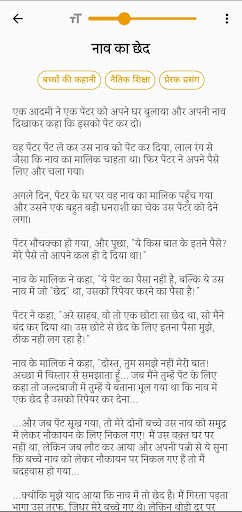 नाव का छेद
बच्चों की कहानी
नैतिक शिक्षा
प्रेरक प्रसंग
एक आदमी ने एक पेंटर को अपने घर बुलाया और अपनी नाव
दिखाकर कहा कि इसको पेंट कर दो।
वह पेंटर पेंट ले कर उस नाव को पेंट कर दिया, लाल रंग से
जैसा कि नाव का मालिक चाहता था। फिर पेंटर ने अपने पैसे
लिए और चला गया।
अगले दिन, पेंटर के घर पर वह नाव का मालिक पहुँच गया
और उसने एक बहुत बड़ी धनराशी का चेक उस पेंटर को देने
लगा।
पेंटर भौंचक्का हो गया, और पूछा, "ये किस बात के इतने पैसे?
मेरे पैसे तो आपने कल ही दे दिया था!"
नाव के मालिक ने कहा, "ये पेंट का पैसा नहीं है, बल्कि ये उस
नाव में जो "छेद" था, उसको रिपेयर करने का पैसा है!"
पेंटर ने कहा, "अरे साहब, वो तो एक छोटा सा छेद था, सो मैंने
बंद कर दिया था। उस छोटे से छेद के लिए इतना पैसा मुझे,
ठीक नहीं लग रहा है!"
नाव के मालिक ने कहा, "दोस्त, तुम समझे नहीं मेरी बात!
अच्छा में विस्तार से समझाता हूँ... जब मैंने तुम्हें पेंट के लिए
कहा तो जल्दबाजी में तुम्हे ये बताना भूल गया था कि नाव में
एक छेद है उसको रिपेयर कर देना...
...और जब पेंट सूख गया, तो मेरे दोनों बच्चे उस नाव को समुद्र
में लेकर नौकायन के लिए निकल गए! मैं उस वक़्त घर पर
नहीं था, लेकिन जब लौट कर आया और अपनी पत्नी से ये सुना
कि बच्चे नाव को लेकर नौकायन पर निकल गए हैं तो मैं
बदहवास हो गया...
...क्योंकि मुझे याद आया कि नाव में तो छेद है। मैं गिरता पड़ता
भागा उस तरफ, जिधर मेरे बच्चे गए थे। लेकिन थोड़ी दूर पर